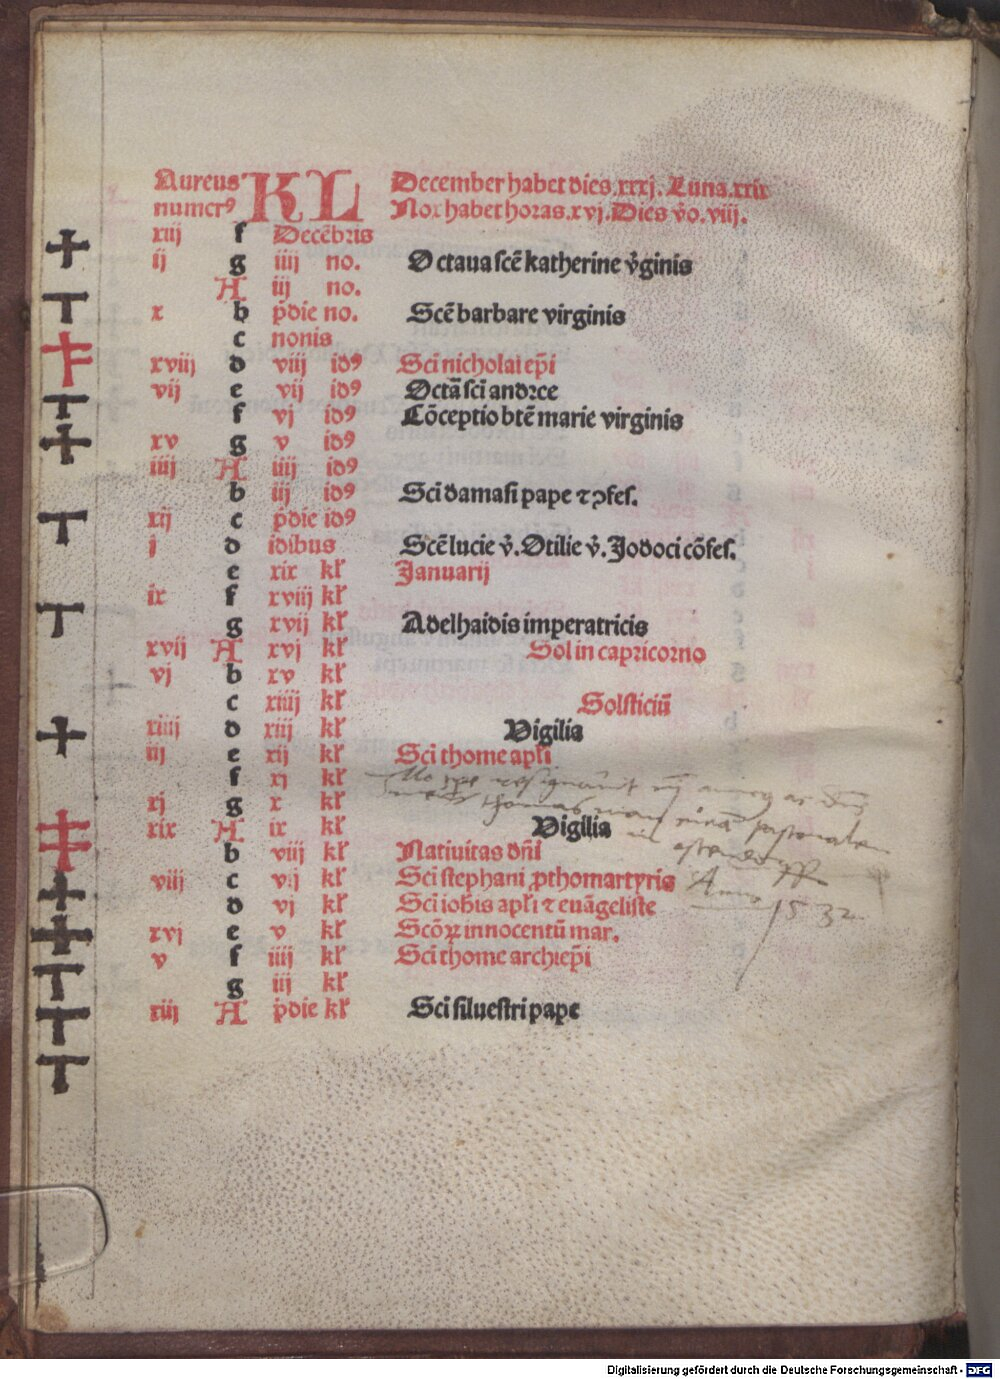 Aureus KL December habet dies.xxxj. Luna.xxix
numerꝰ Nox habet horas.xvj. Dies v̄o.viij.
xiij f Decēbris
ij g iiij no. Octaua scē katherine v̄ginis
A iij no.
x b p̄die no. Scē barbare virginis
c nonis
xviij d viij idꝰ Sci nicholai ep̄i
vij e vij idꝰ Octā sci andree
f vj idꝰ Cōceptio btē marie virginis
xv g v idꝰ
iiij A iiij idꝰ
b iij idꝰ Sci damasi pape ⁊ ꝯfes.
xij c p̄die idꝰ
j d idibus Scē lucie v̄. Otilie v̄. Jodoci cōfes.
e xix kl̄ Januarij
ix f xviij kl̄
g xvij kl̄ Adelhaidis imperatricis
xvij A xvj kl̄ Sol in capricorno
vj b xv kl̄
c xiiij kl̄ Solsticiū
xiiij d xiij kl̄ Vigilia
iij e xij kl̄ Sci thome apl̄i
f xj kl̄
xj g x kl̄
xix A ix kl̄ Vigilia
b viij kl̄ Natiuitas dn̄i
viij c vij kl̄ Sci stephani ꝓthomartyris
d vj kl̄ Sci ioh̄is apl̄i ⁊ euāgeliste
xvj e v kl̄ Scōꝝ innocentū mar.
v f iiij kl̄ Sci thome archiep̄i
g iij kl̄
xiij A p̄die kl̄ Sci siluestri pape
thomas
Anno
1532
Digitalisierung gefördert durch die Deutsche Forschungsgemeinschaft - DFG